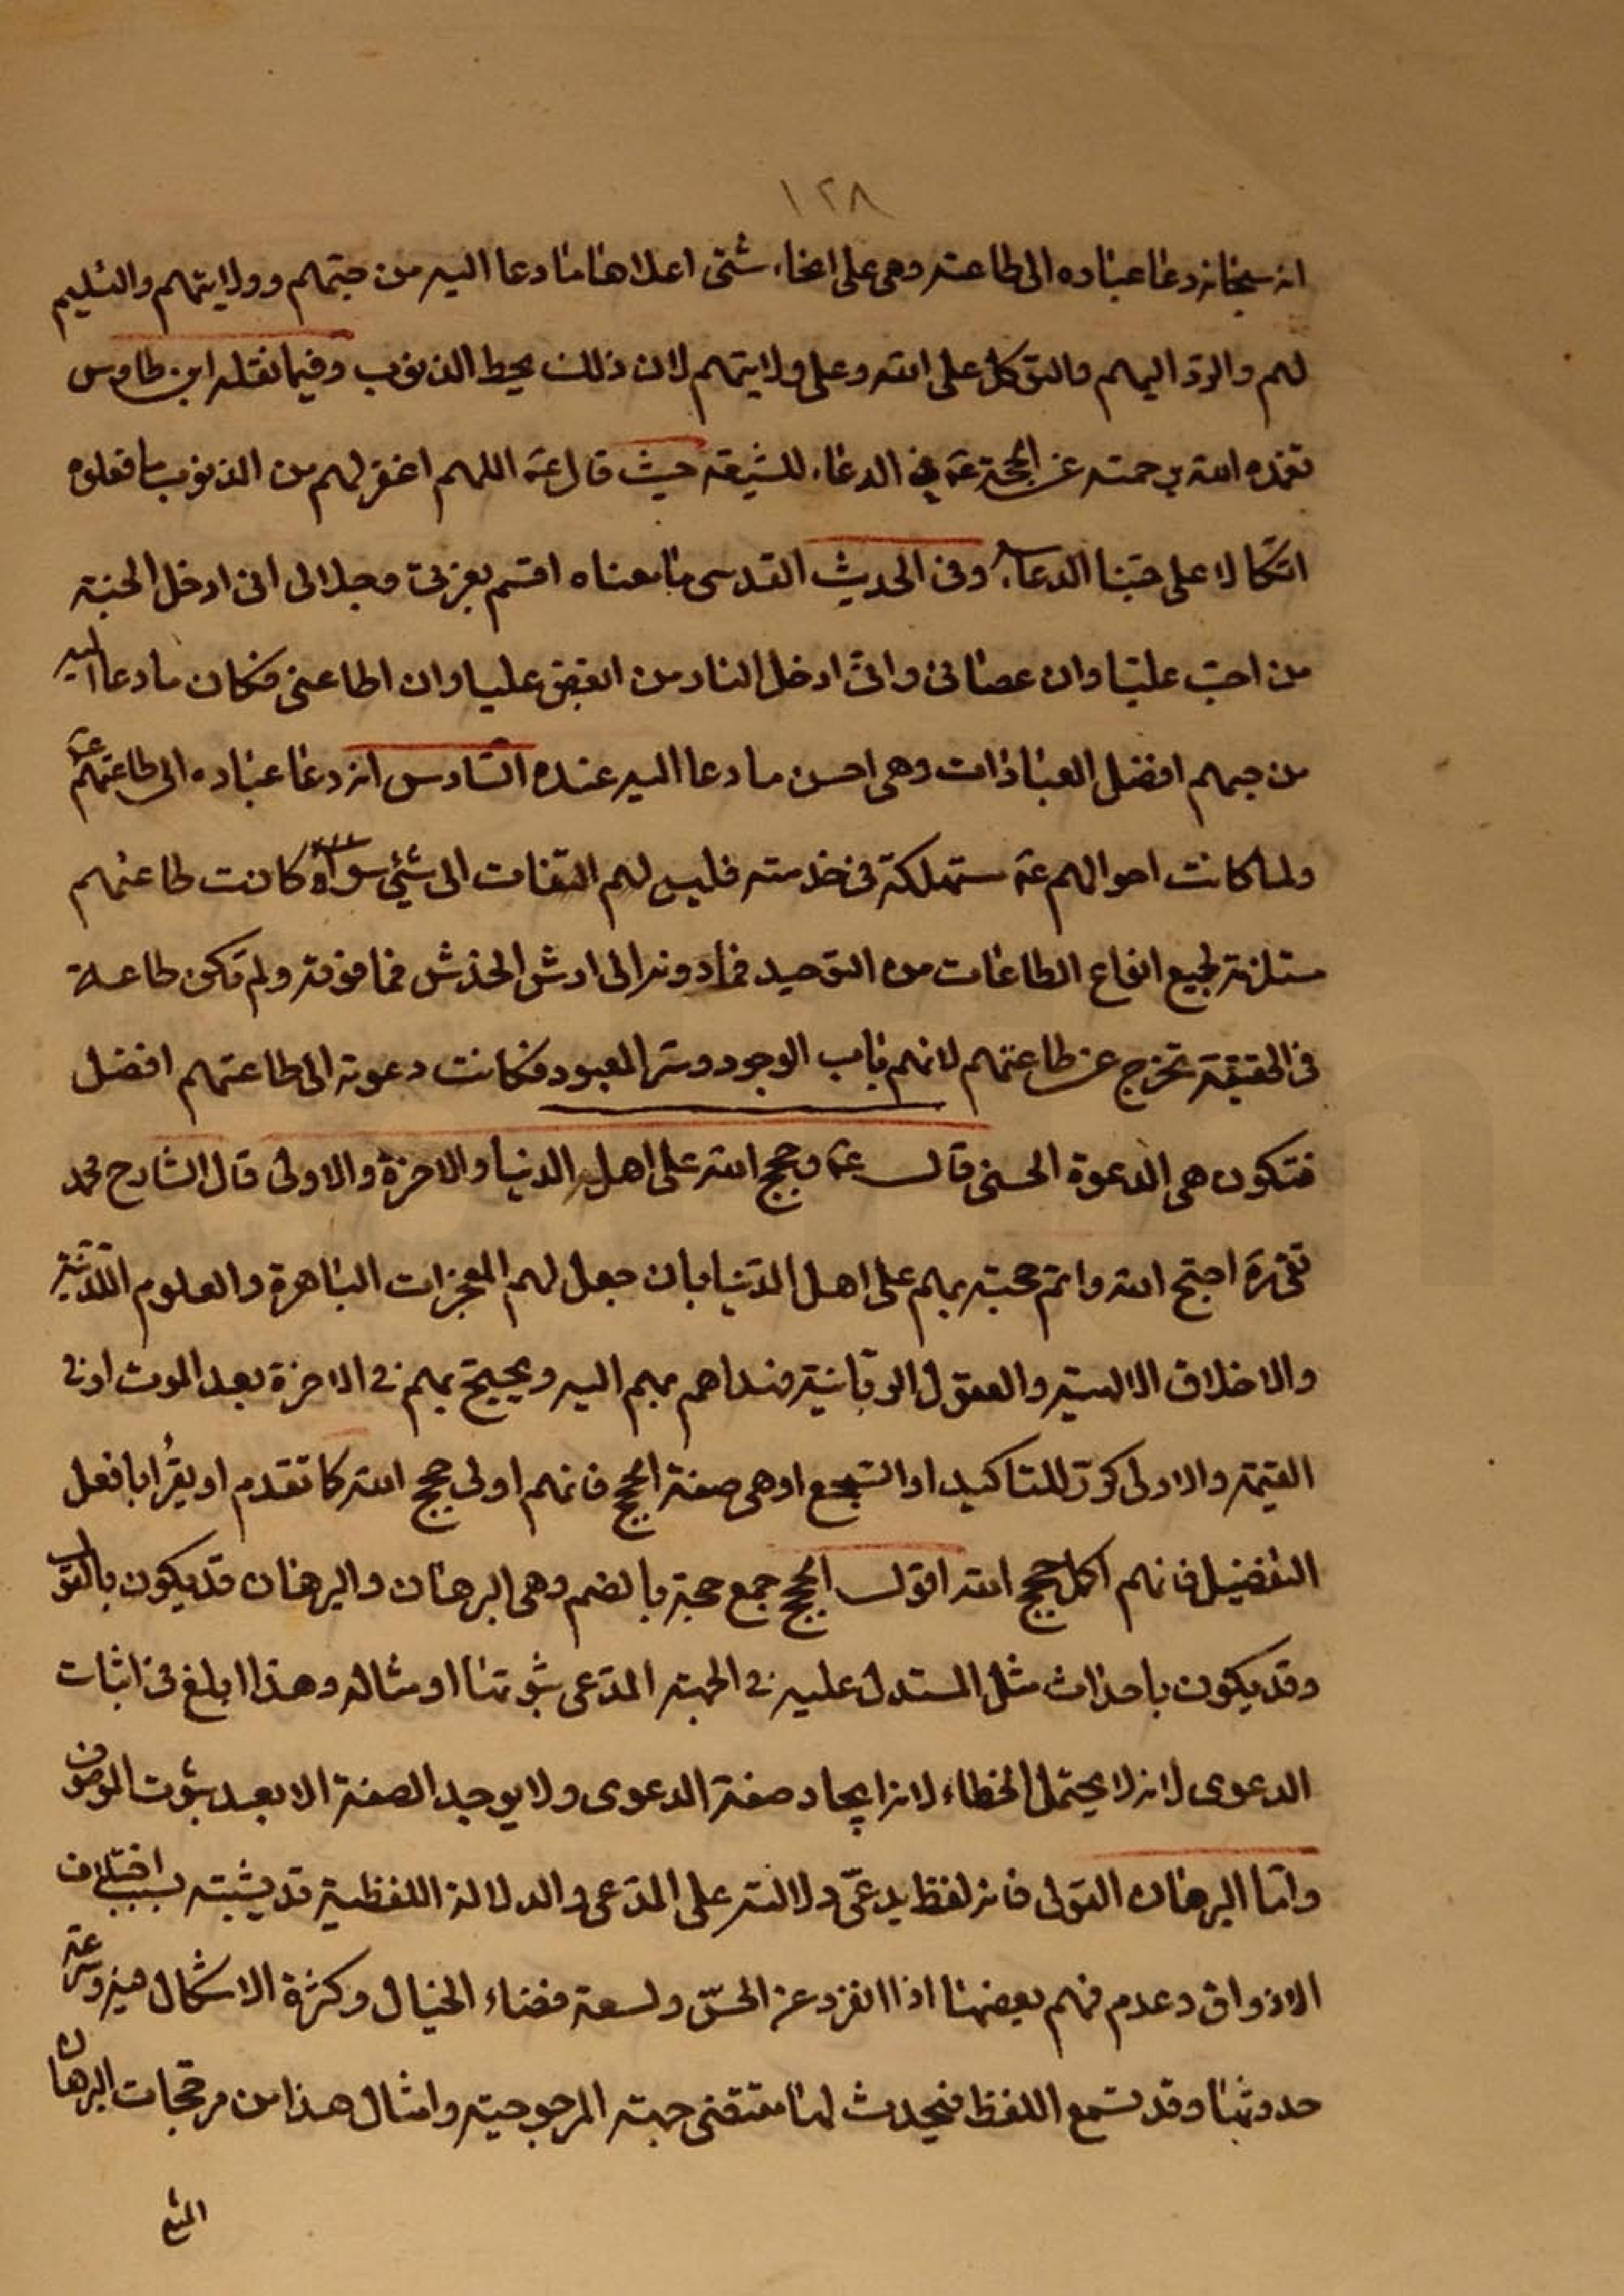 ١٢٨
انه سبحانه دعا عباده الى طاعته وهى على انحاء شتى اعلاها ما دعا اليه من حبّهم وولايتهم والتسليم
لهم والردّ اليهم والتوكل على الله وعلى ولايتهم لان ذلك يحط الذنوب وفيما نقله ابن طاوس
تغمده الله برحمته عن الحجة عَ فى الدعاء للشيعة حيث قال عَ اللهم اغفر لهم من الذنوب ما فعلوه
اتكالا على حبّنا الدعاء وفى الحديث القدسى ما معناه اقسم بعزتى وجلالى انى ادخل الجنة
من احبّ عليّا وان عصانى وانّى ادخل النار من ابغض عليا وان اطاعنى فكان ما دعا اليه
من حبهم افضل العبادات وهى احسن ما دعا اليه عنده السّادس انه دعا عباده الى طاعتهم عَ
ولما كانت احوالهم عَ مستهلكة فى خدمته فليس لهم التفات الى شئ سواه كانت طاعتهم
مستلزمة لجميع انواع الطاعات من التوحيد فما دونه الى ارش الخدش فما فوقه ولم تكن طاعة
فى الحقيقة تخرج عن طاعتهم لانهم باب الوجود وسرّ المعبود فكانت دعوته الى طاعتهم افضل
فتكون هى الدعوة الحسنى قال عَ وحجج الله على اهل الدنيا والاخرة والاولى قال الشارح محمد
تقى رَه احتج الله واتم حجته بهم على اهل الدّنيا بان جعل لهم المعجزات الباهرة والعلوم اللّدنّية
والاخلاق الالهية والعقول الربّانية فهداهم بهم اليه ويحتج بهم فى الاخرة بعد الموت او فى
القيمة والاولى كرّر للتاكيد او السّجع او هى صفة الحجج فانهم اولى حجج الله كما تقدم او يقُرا بافعل
التفضيل فانهم اكمل حجج الله اقول الحجج جمع حجة بالضم وهى البرهان والبرهان قد يكون بالقول
وقد يكون باحداث مثل المستدل عليه فى الجهة المدّعى ثبوتها او مثاله وهذا ابلغ فى اثبات
الدعوى لانه لا يحتمل الخطاء لانه ايجاد صفة الدعوى ولا يوجد الصفة الا بعد ثبوت الموصوف
وامّا البرهان القولى فانه لفظ يدعّى دلالته على المدّعى والدلالة اللفظية قد يشتبه بسبب اختلاف
الاذواق وعدم فهم بعضها اذا انفرد عن الحسّ ولسعة فضاء الخيال وكثرة الاشكال فيه وسرعة
حدوثها وقد تسمع اللفظ فيحدث لها مقتضى جهة المرجوحية وامثال هذا من مرجّحات البرهان